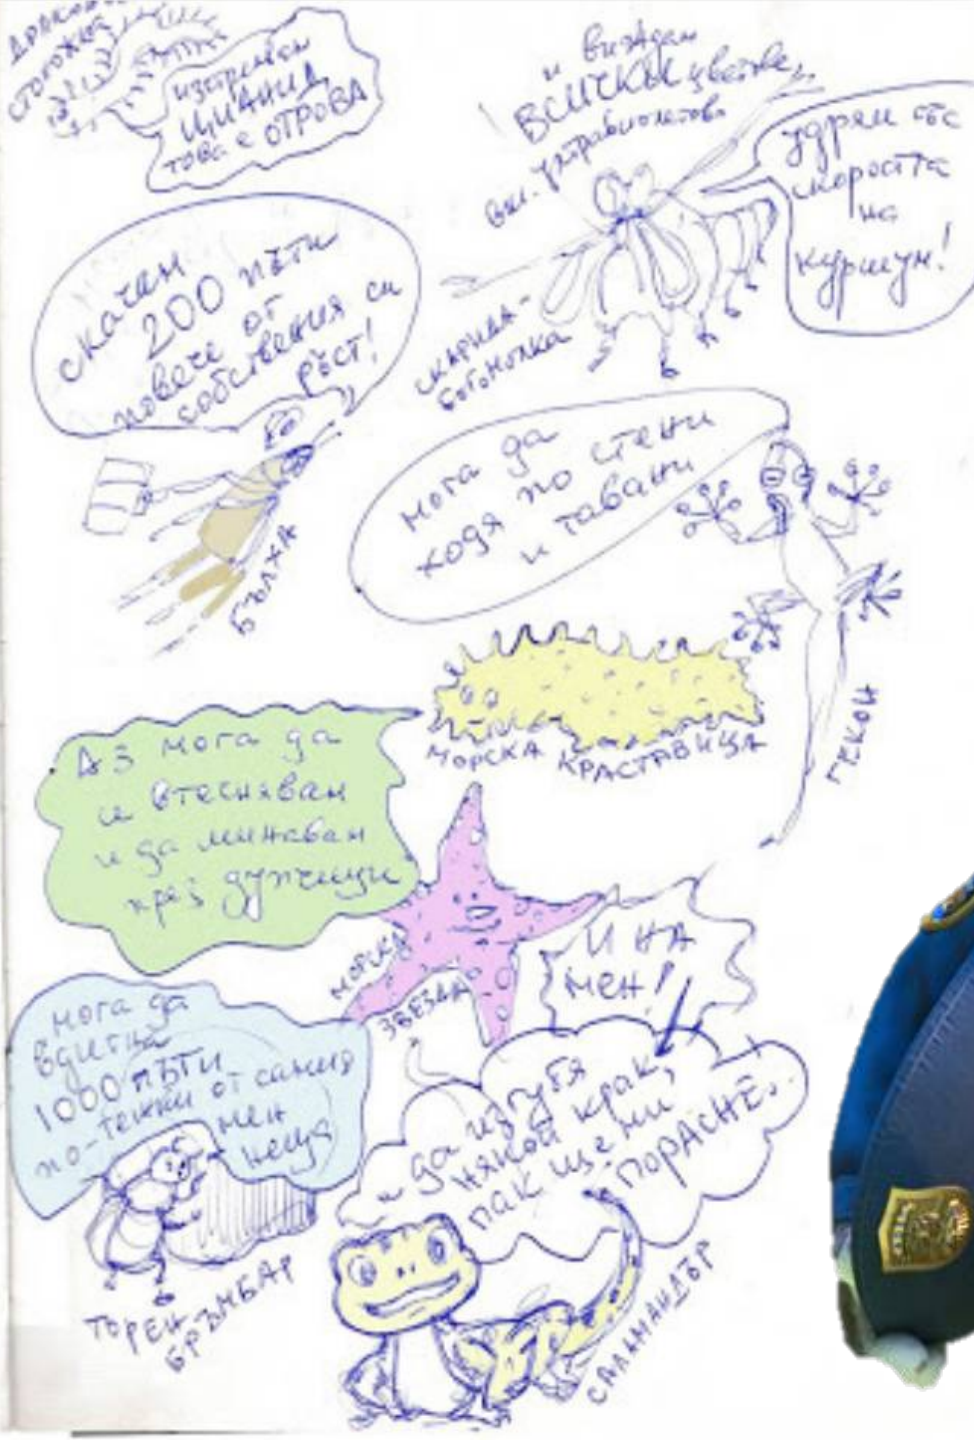 СТОНОЖКА
изстрелвам
ЦИАНИД
това е ОТРОВА
и виждам
ВСИЧКИ цветове,
вкл. ултравиолетово
удрям със
скоростта
на
куршум!
СКАРИДА-
БОГОМОЛКА
скачам
200 пъти
повече от
собствения си
ръст!
БЪЛХА
мога да
ходя по стени
и тавани
ГЕКОН
МОРСКА КРАСТАВИЦА
Аз мога да
се втеснявам
и да минавам
през дупчици
МОРСКА
ЗВЕЗДА
И НА
МЕН!
мога да
вдигна
1000 ПЪТИ
по-тежки от самия
мен
неща
ТОРЕН
БРЪМБАР
и да изгубя
някой крак,
пак ще ми
ПОРАСНЕ.
САЛАМАНДЪР